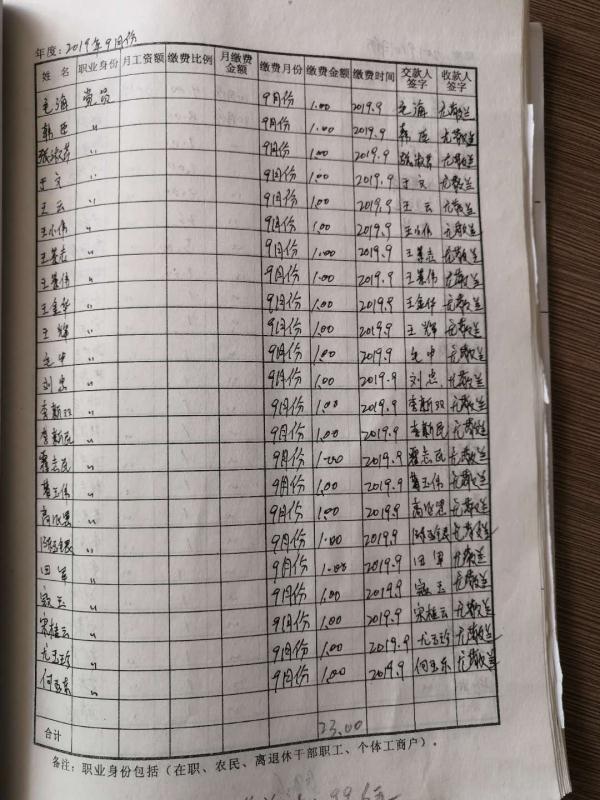 年度：2019年9月份
姓名 职业身份 月工资额 缴费比例 月缴费金额 缴费月份 缴费金额 缴费时间 交款人签字 收款人签字
毛海 党员 9月份 1.00 2019.9 毛海
韩臣 〃 9月份 1.00 2019.9 韩臣
张淑芬 〃 9月份 1.00 2019.9 张淑芬
于文 〃 9月份 1.00 2019.9 于文
王云 〃 9月份 1.00 2019.9 王云
王小伟 〃 9月份 1.00 2019.9 王小伟
王景志 〃 9月份 1.00 2019.9 王景志
王景伟 〃 9月份 1.00 2019.9 王景伟
王金华 〃 9月份 1.00 2019.9 王金华
王辉 〃 9月份 1.00 2019.9 王辉
毛中 〃 9月份 1.00 2019.9 毛中
刘忠 〃 9月份 1.00 2019.9 刘忠
李新双 〃 9月份 1.00 2019.9 李新双
李新民 〃 9月份 1.00 2019.9 李新民
霍志民 〃 9月份 1.00 2019.9 霍志民
葛玉伟 〃 9月份 1.00 2019.9 葛玉伟
高 〃 9月份 1.00 2019.9 高
〃 9月份 1.00 2019.9
田军 〃 9月份 1.00 2019.9 田军
寇玉 〃 9月份 1.00 2019.9 寇玉
宋桂云 〃 9月份 1.00 2019.9 宋桂云
尤玉珍 〃 9月份 1.00 2019.9 尤玉珍
何亚东 〃 9月份 1.00 2019.9 何亚东
合计 23.00
备注：职业身份包括（在职、农民、离退休干部职工、个体工商户）。